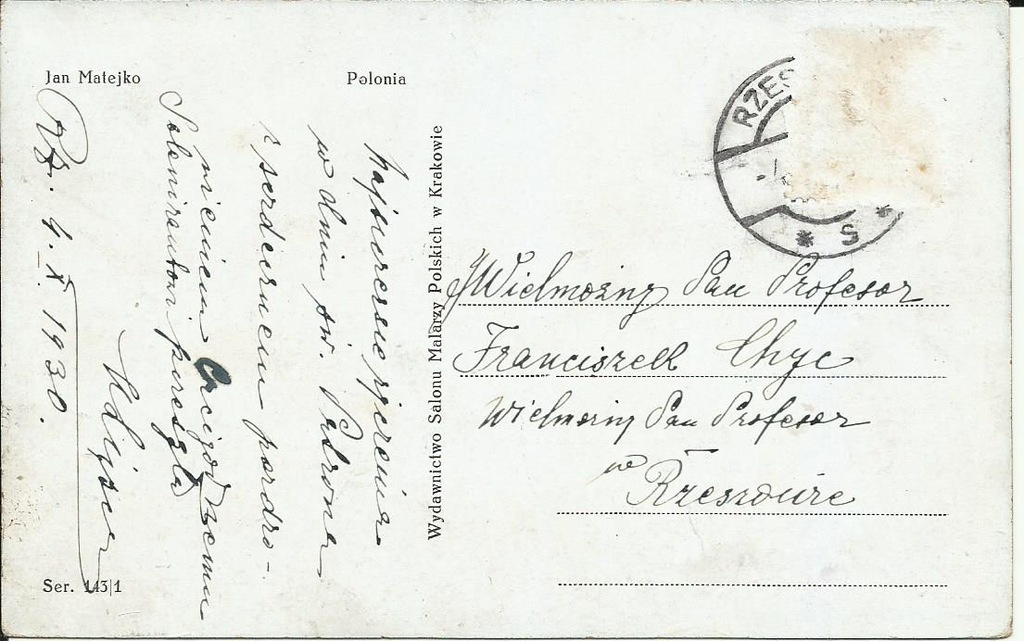 Jan Matejko
Polonia
Najszczersze życzenia
w dniu św. Patrona
z serdecznem pozdro-
wieniem Czcigodnemu
Solenizantowi przesyła
Rz. 4. X. 1930.
Wydawnictwo Salonu Malarzy Polskich w Krakowie
Ser. 143|1
RZES
* S *
JWielmożny Pan Profesor
Franciszek Chyc
Wielmożny Pan Profesor
we
Rzeszowie